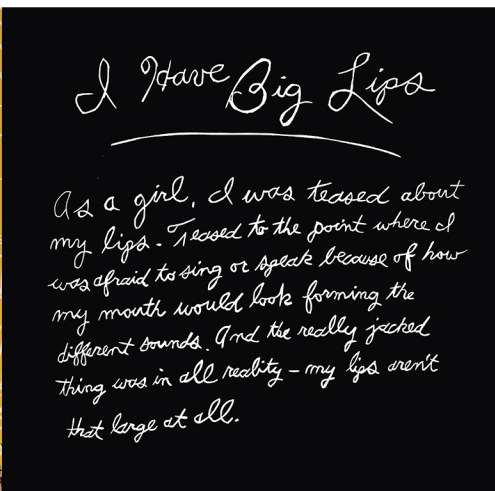 I Have Big Lips
As a girl, I was teased about
my lips. Teased to the point where I
was afraid to sing or speak because of how
my mouth would look forming the
different sounds. And the really jacked
thing was in all reality – my lips aren't
that large at all.